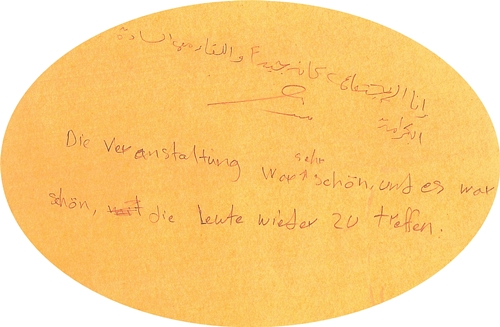 أنا الإجتماع كانه جيداً واللقاء مع السادة
الكرامة
Die Veranstaltung war sehr schön, und es war
schön, die Leute wieder zu treffen.